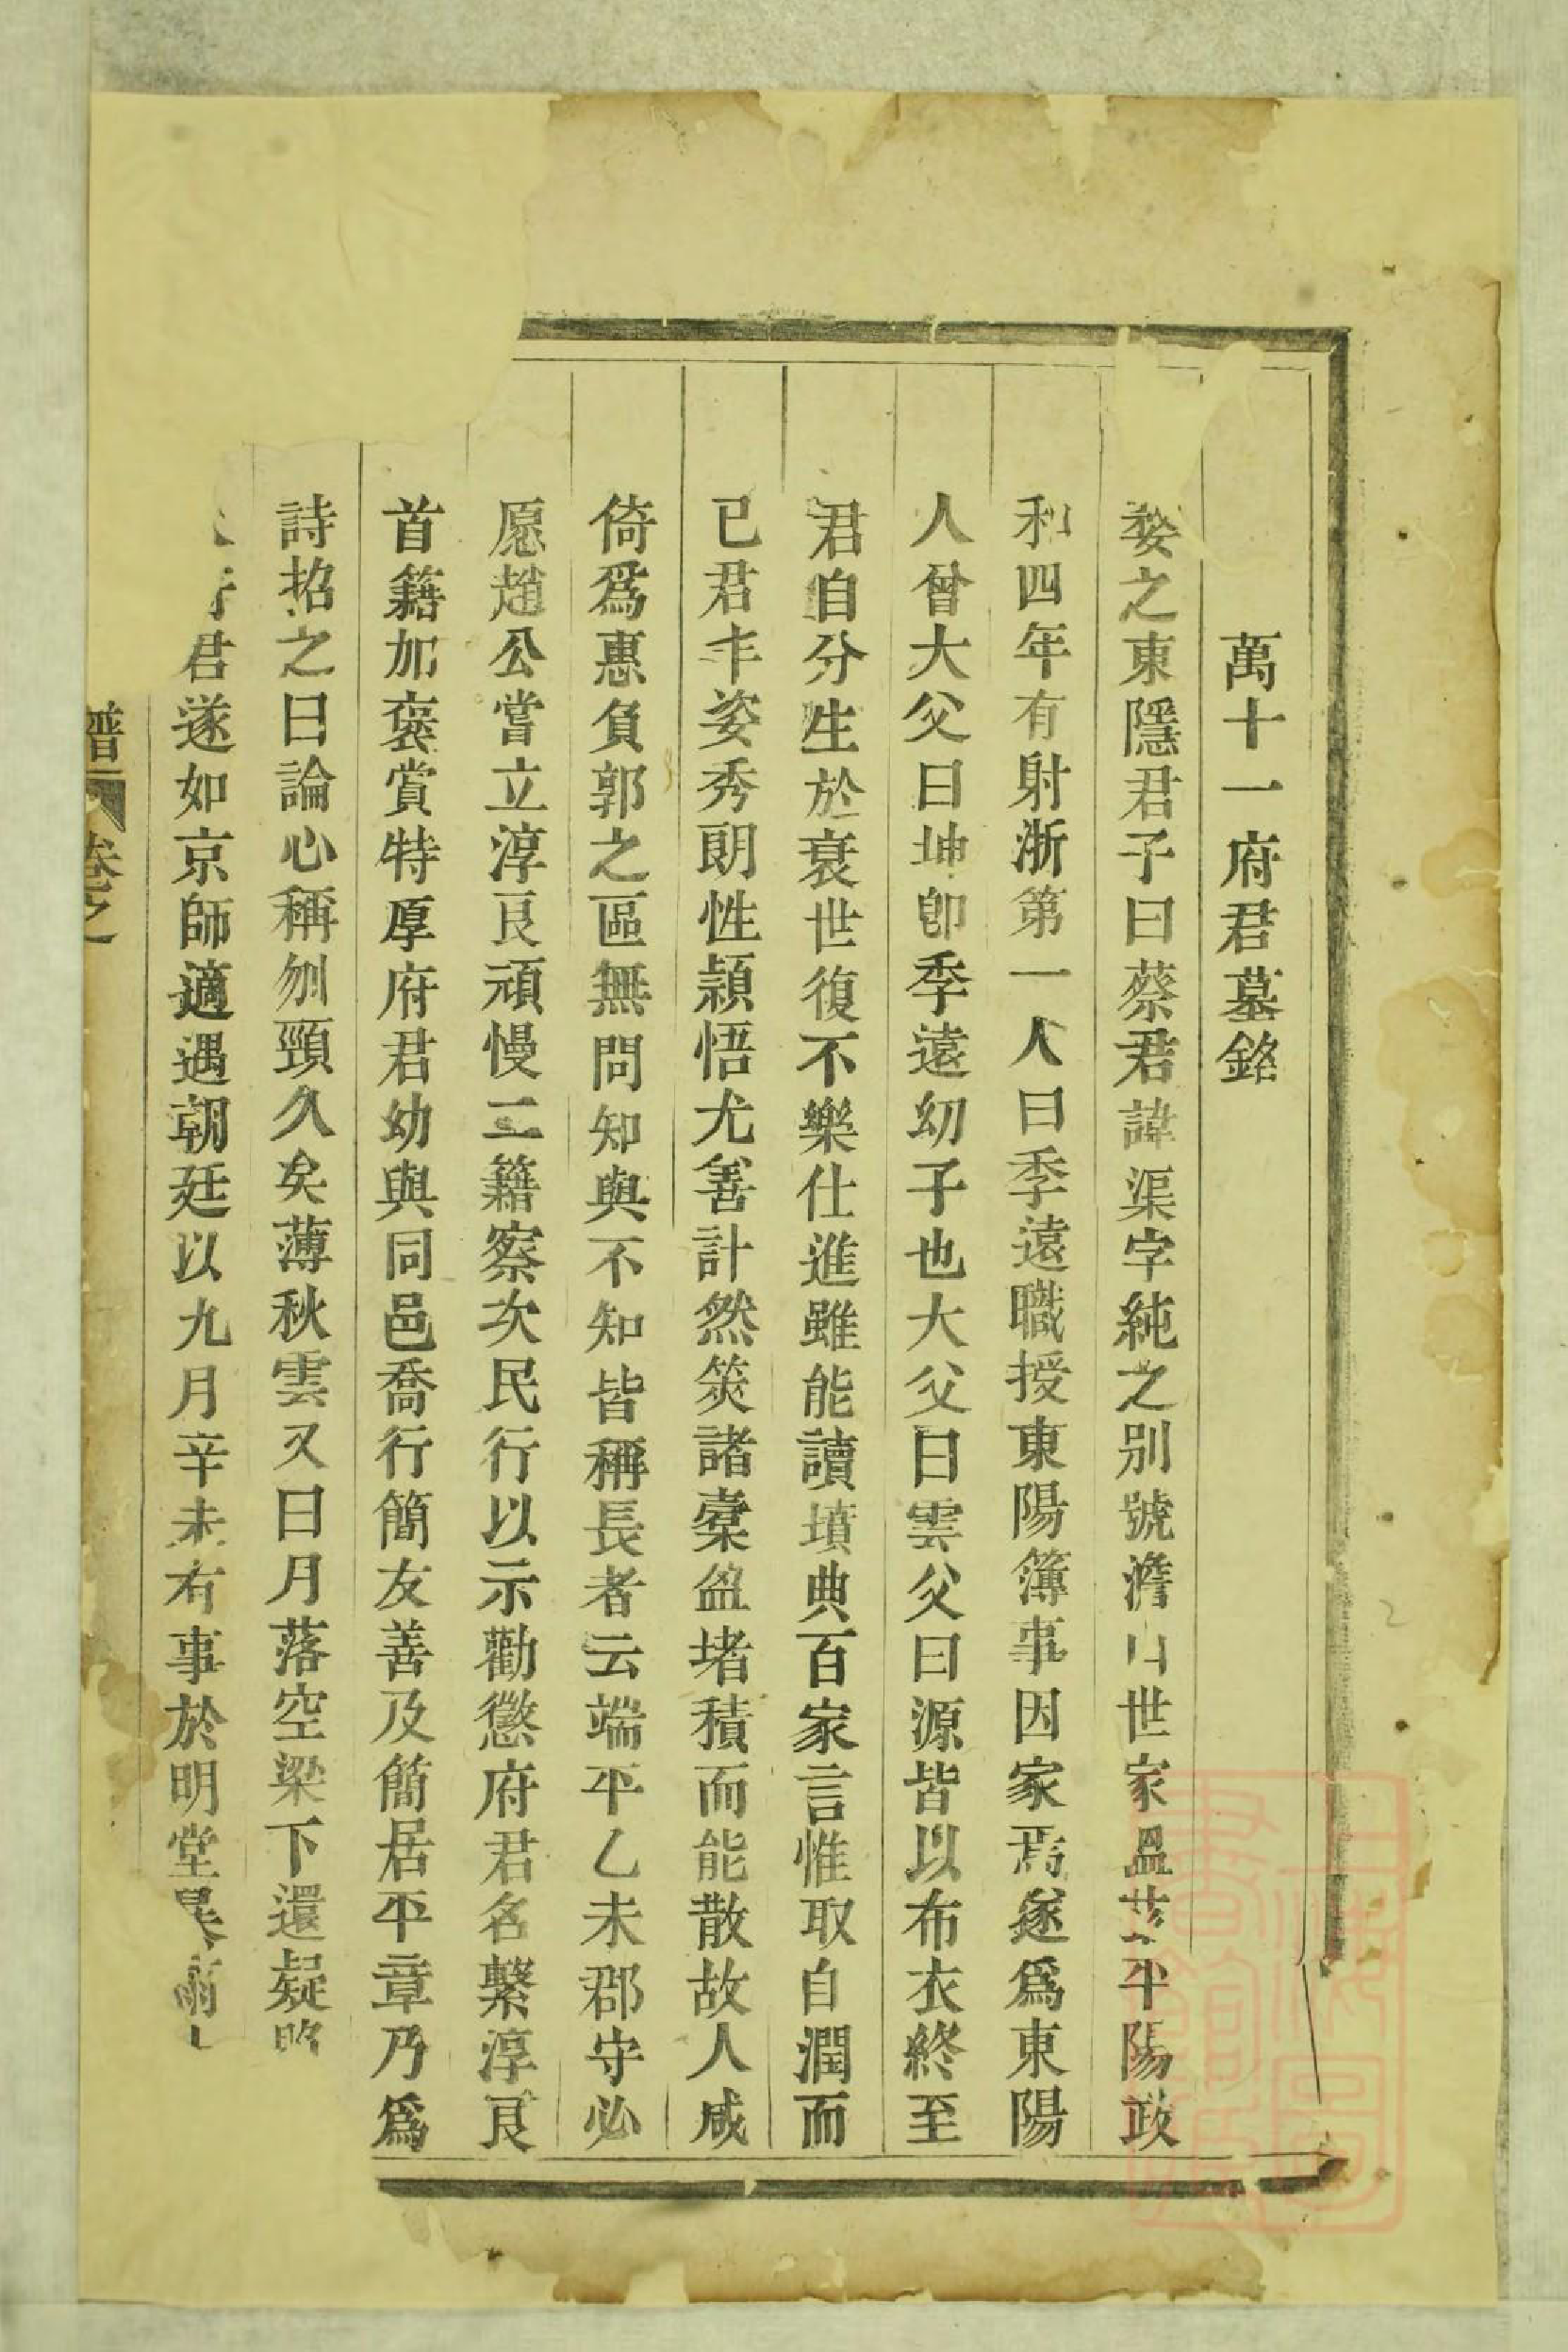 萬十一府君墓銘
婺之東隱君子曰蔡君諱渠字純之别號澹山世家溫平陽政
和四年有射浙第一人曰季遠職授東陽簿事因家焉遂爲東陽
人曾大父曰坤卽季遠幼子也大父曰雲父曰源皆以布衣終至
君自分生於衰世復不樂仕進雖能讀墳典百家言惟取自潤而
已君丰姿秀朗性穎悟尤善計然筴諸橐盈堵積而能散故人咸
倚爲惠負郭之區無問知與不知皆稱長者云端平乙未郡守必
愿趙公嘗立淳良頑慢二籍察次民行以示勸懲府君名繫淳良
首籍加褒賞特厚府君幼與同邑喬行簡友善及簡居平章乃爲
詩招之曰論心稱刎頸久矣薄秋雲又曰月落空梁下還疑
君遂如京師適遇朝廷以九月辛未有事於明堂
譜 卷之